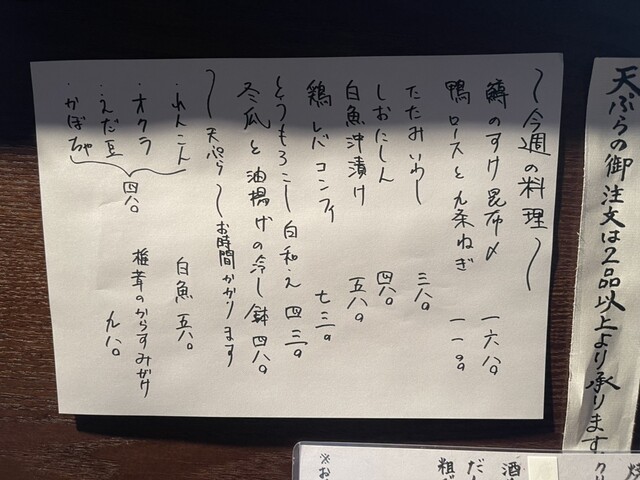 天ぷらの御注文は2品以上より承ります。
〜今週の料理〜
鱒のすけ昆布〆 一六八〇
鴨ロースと九条ねぎ 一一〇〇
たたみいわし 三八〇
しおにしん 四八〇
白魚沖漬け 五八〇
鶏レバコンフィ 七三〇
とうもろこし白和え 四三〇
冬瓜と油揚げの冷し鉢 四八〇
〜天ぷら〜お時間かかります
・れんこん
・オクラ
・えだ豆
・かぼちゃ
四八〇
白魚 五八〇
椎茸のからすみがけ 九八〇
※お